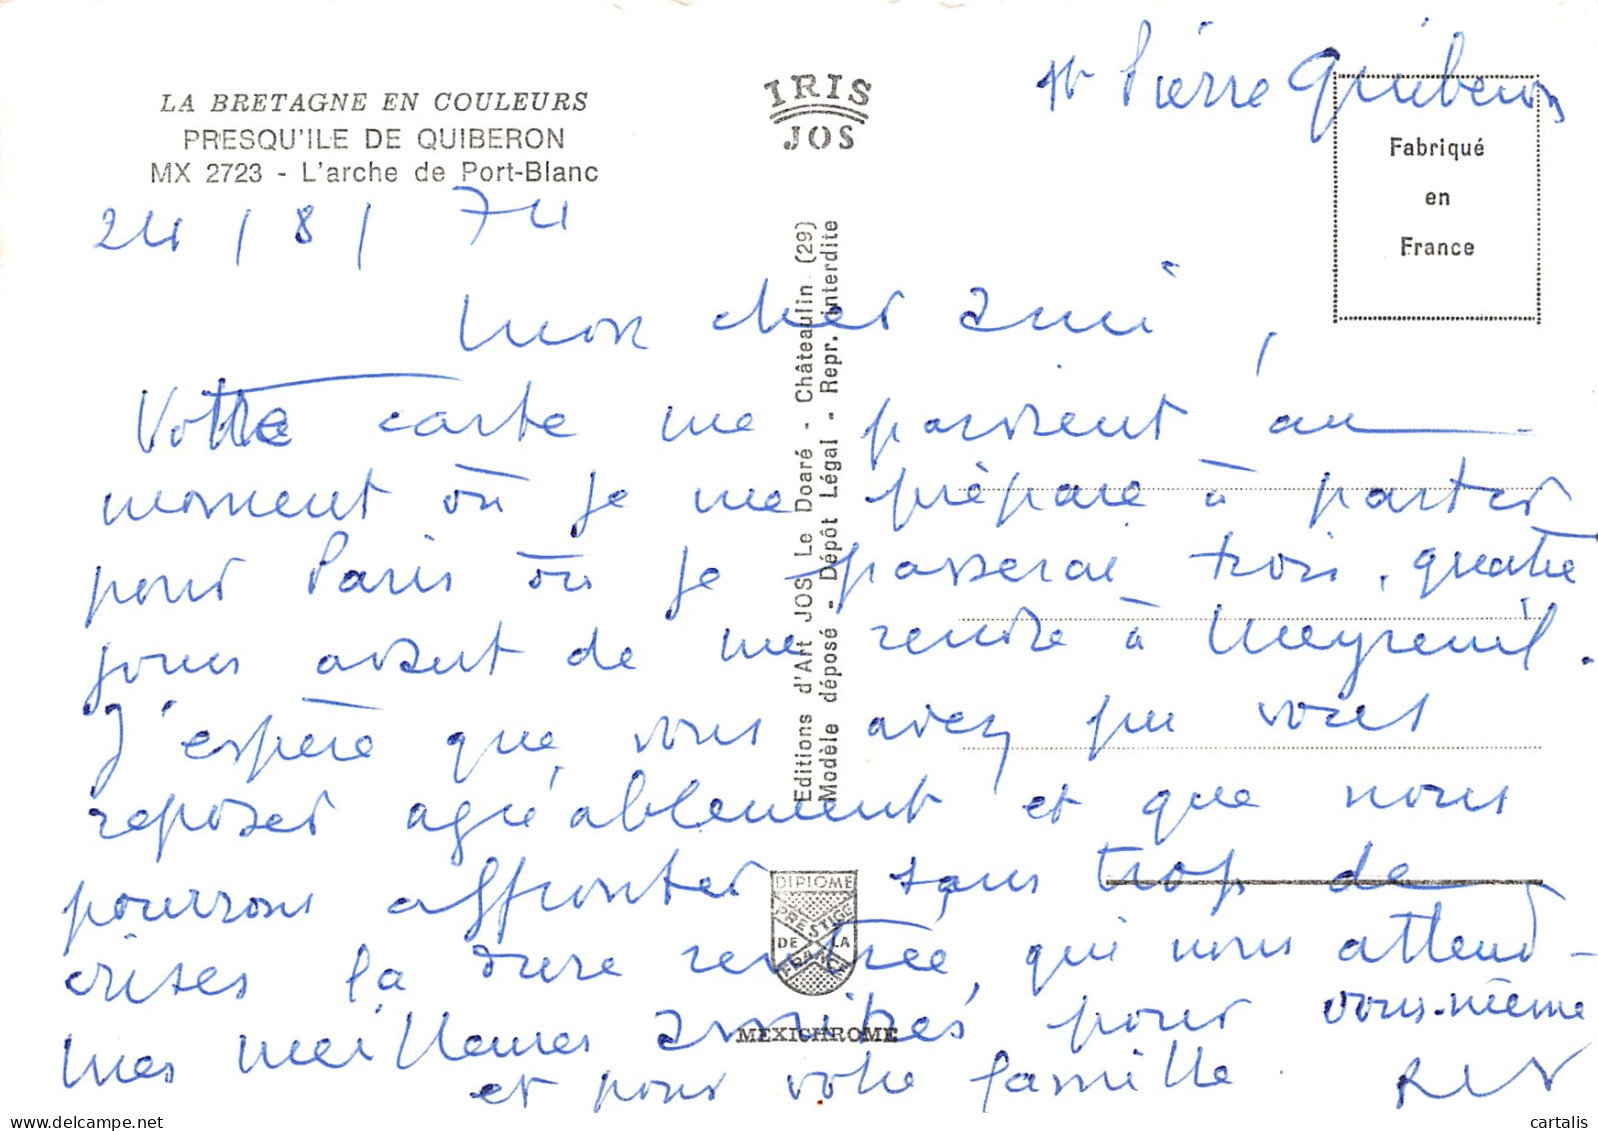 St Pierre Quiberon
IRIS
JOS
LA BRETAGNE EN COULEURS
PRESQU'ILE DE QUIBERON
MX 2723 - L'arche de Port-Blanc
Fabriqué
en
France
24 / 8 / 74
Mon cher ami,
Votre carte me parvient au
moment où je me prépare à partir
pour Paris où je passerai trois, quatre
jours avant de me rendre à Meyreuil.
J'espère que vous avez pu vous
reposer agréablement et que nous
pourrons affronter sans trop de
crises la dure rentrée, qui nous attend -
Mes meilleures amitiés pour vous-même
et pour votre famille.
Editions d'Art JOS Le Doaré - Châteaulin (29)
Modèle déposé - Dépôt Légal - Repr. interdite
DIPLOME
PRESTIGE
DE LA
FRANCE
MEXICHROME
cartalis